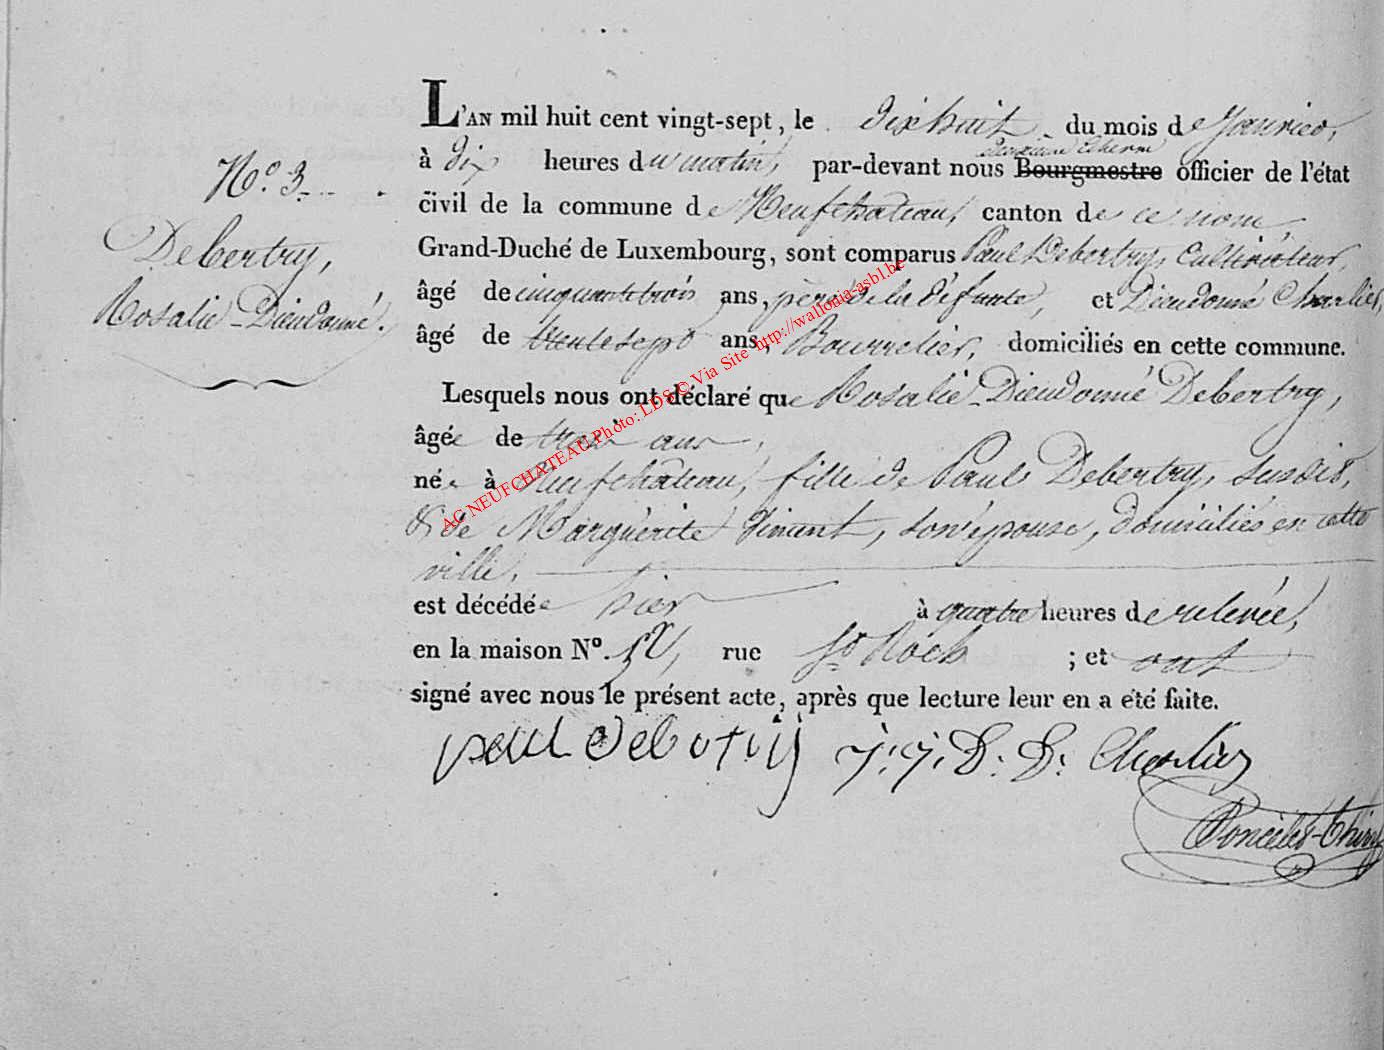 L'AN mil huit cent vingt-sept, le dix huit du mois de Janvier,
à dix heures du matin, par-devant nous Bourgmestre officier de l'état
civil de la commune de Neufchateau, canton de ce nom,
Grand-Duché de Luxembourg, sont comparus Paul Debertry, Cultivateur,
âgé de cinquante trois ans, père de la défunte, et Dieudonné Charlier,
âgé de trente sept ans, Bourrelier, domiciliés en cette commune.
Lesquels nous ont déclaré que Rosalie-Dieudonné Debertry,
âgée de trois ans,
née à Neufchateau, fille de Paul Debertry, susdit,
& de Marguerite Dinant, son épouse, domiciliés en cette
ville.
est décédée hier à quatre heures de relevée,
en la maison N°. rue St Roch ; et ont
signé avec nous le présent acte, après que lecture leur en a été faite.
N.° 3
Debertry,
Rosalie-Dieudonné.
paul debertrij J. J. D. D. Charlier
Poncelet-Thiry
AC NEUFCHATEAU Photo: LDS © Via Site http://wallonia-asbl.be